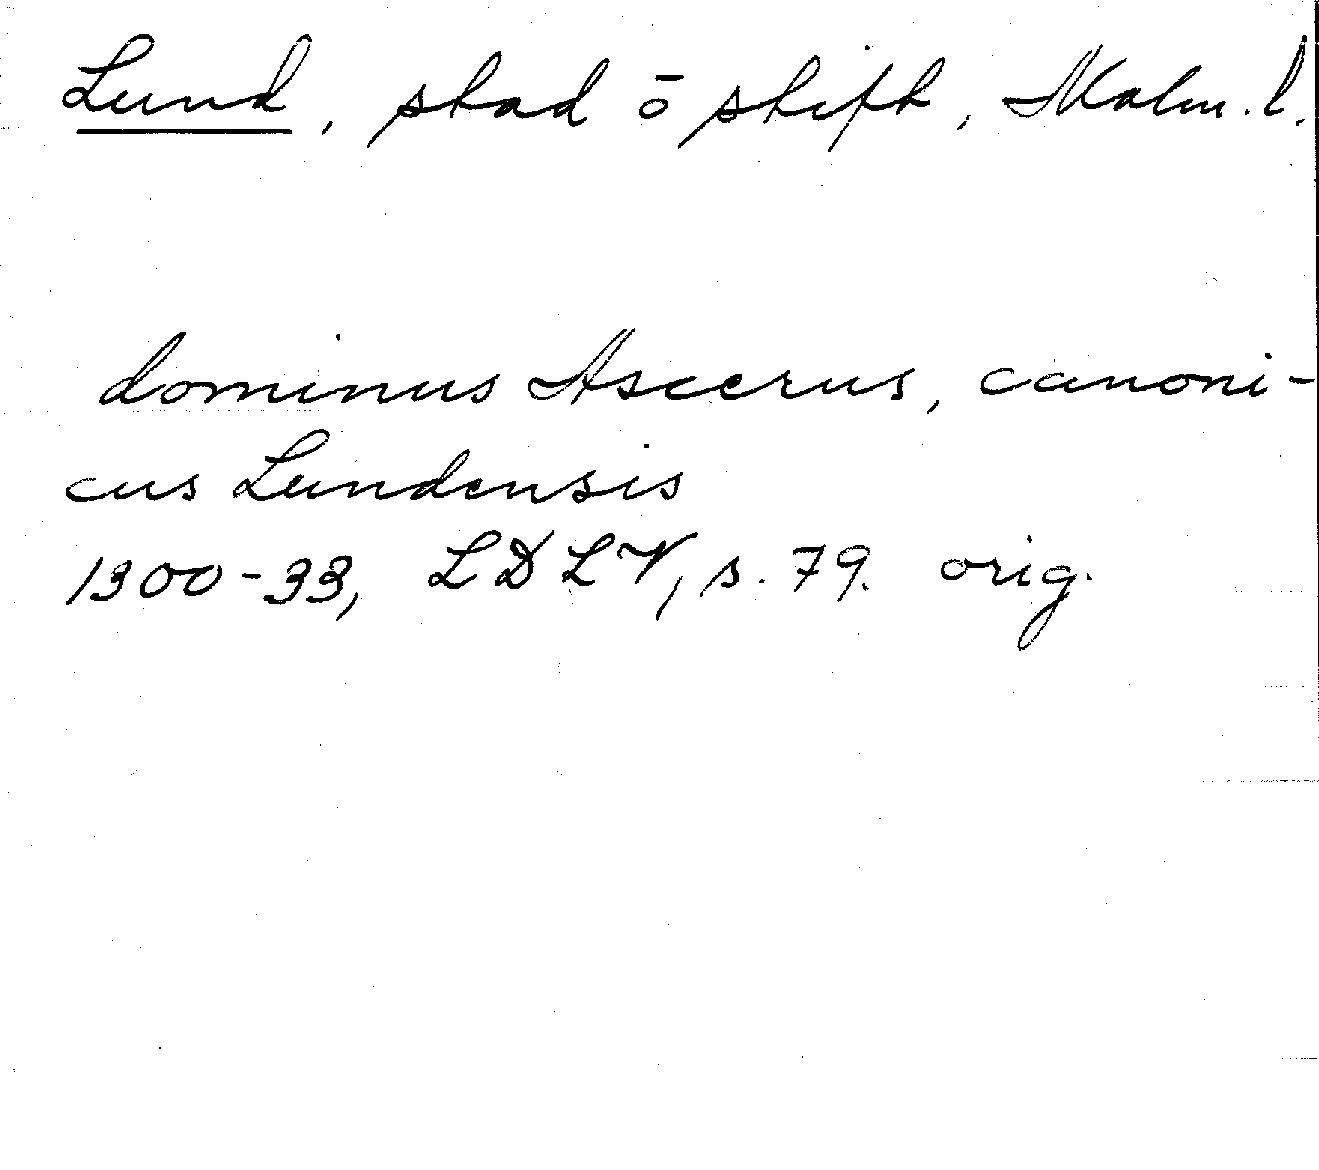 Lund, stad ō stift, Malm. l.
dominus Ascerus, canoni-
cus Lundensis
1300-33, LDLV, s. 79. orig.